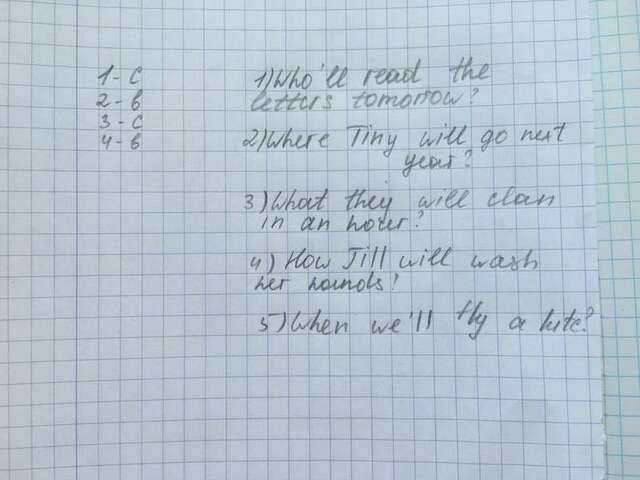 1-C
2-b
3-C
4-b
1) Who'll read the
letters tomorrow?
2) Where Tiny will go next
year?
3) What they will clean
in an hour?
4) How Jill will wash
her hands?
5) When we'll fly a kite?